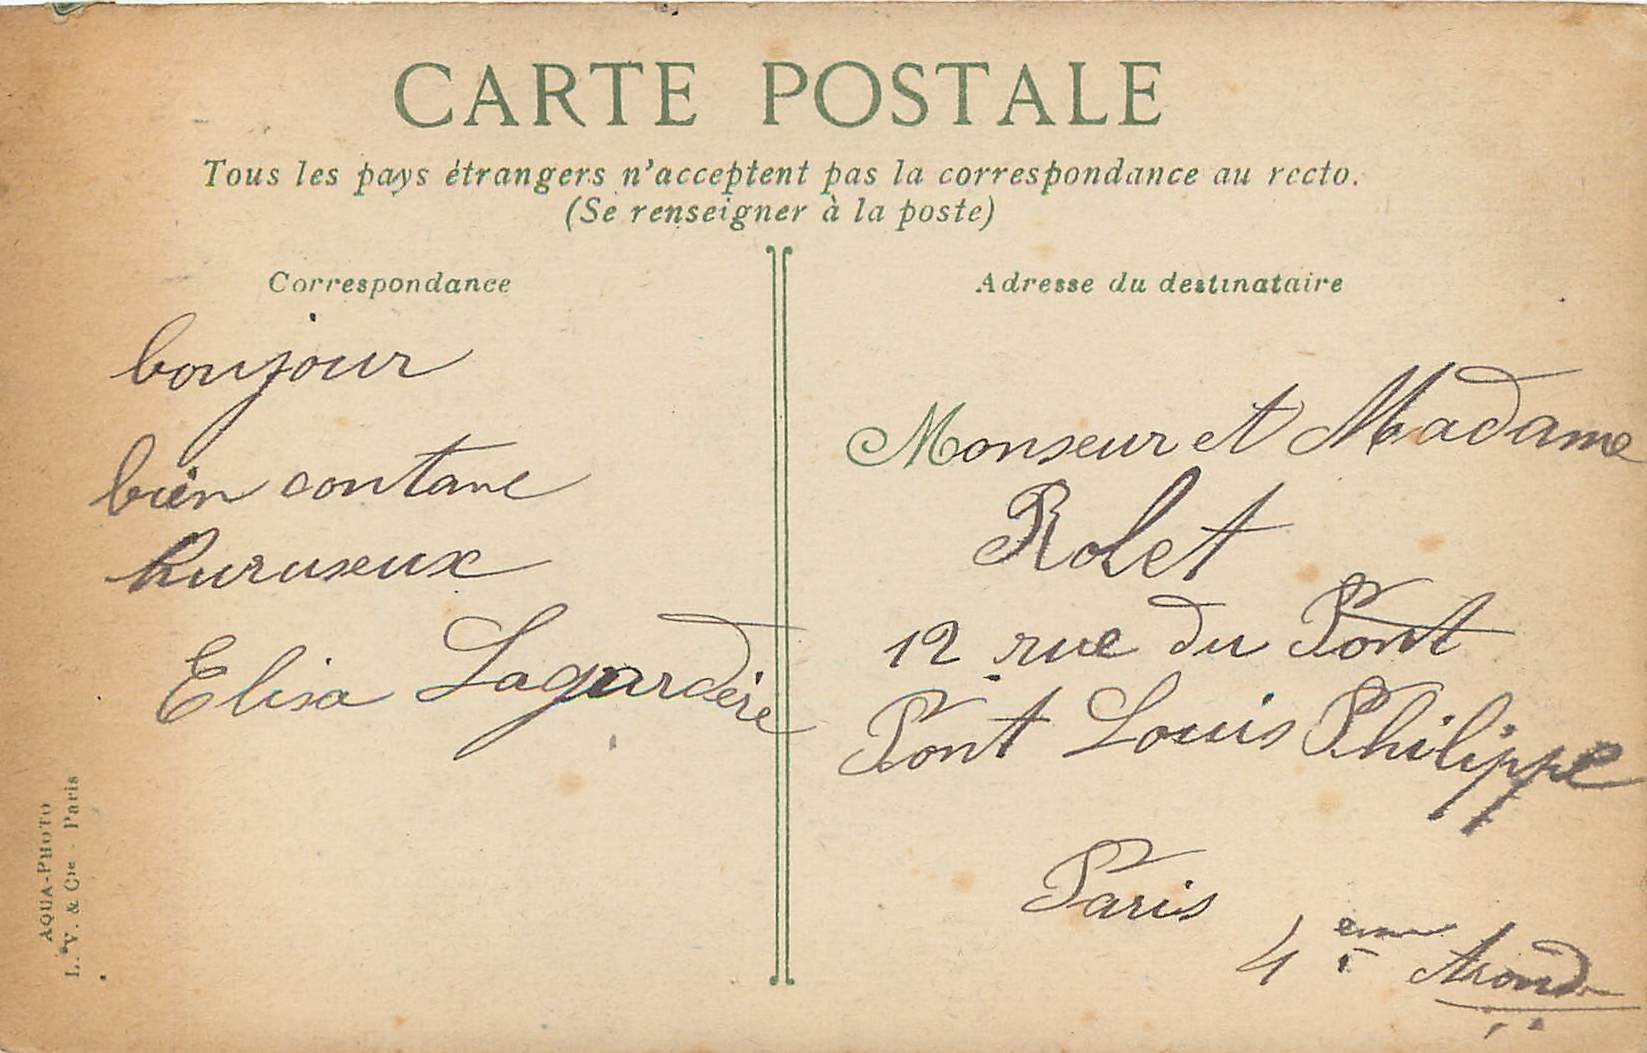 CARTE POSTALE
Tous les pays étrangers n'acceptent pas la correspondance au recto.
(Se renseigner à la poste)
Correspondance
bonjour
bien contane
huruseux
Elisa Lagardère
Adresse du destinataire
Monseur et Madame
Rolet
12 rue du Pont
Pont Louis Philippe
Paris
4eme Arond
AQUA-PHOTO
L. V. & Cie - Paris